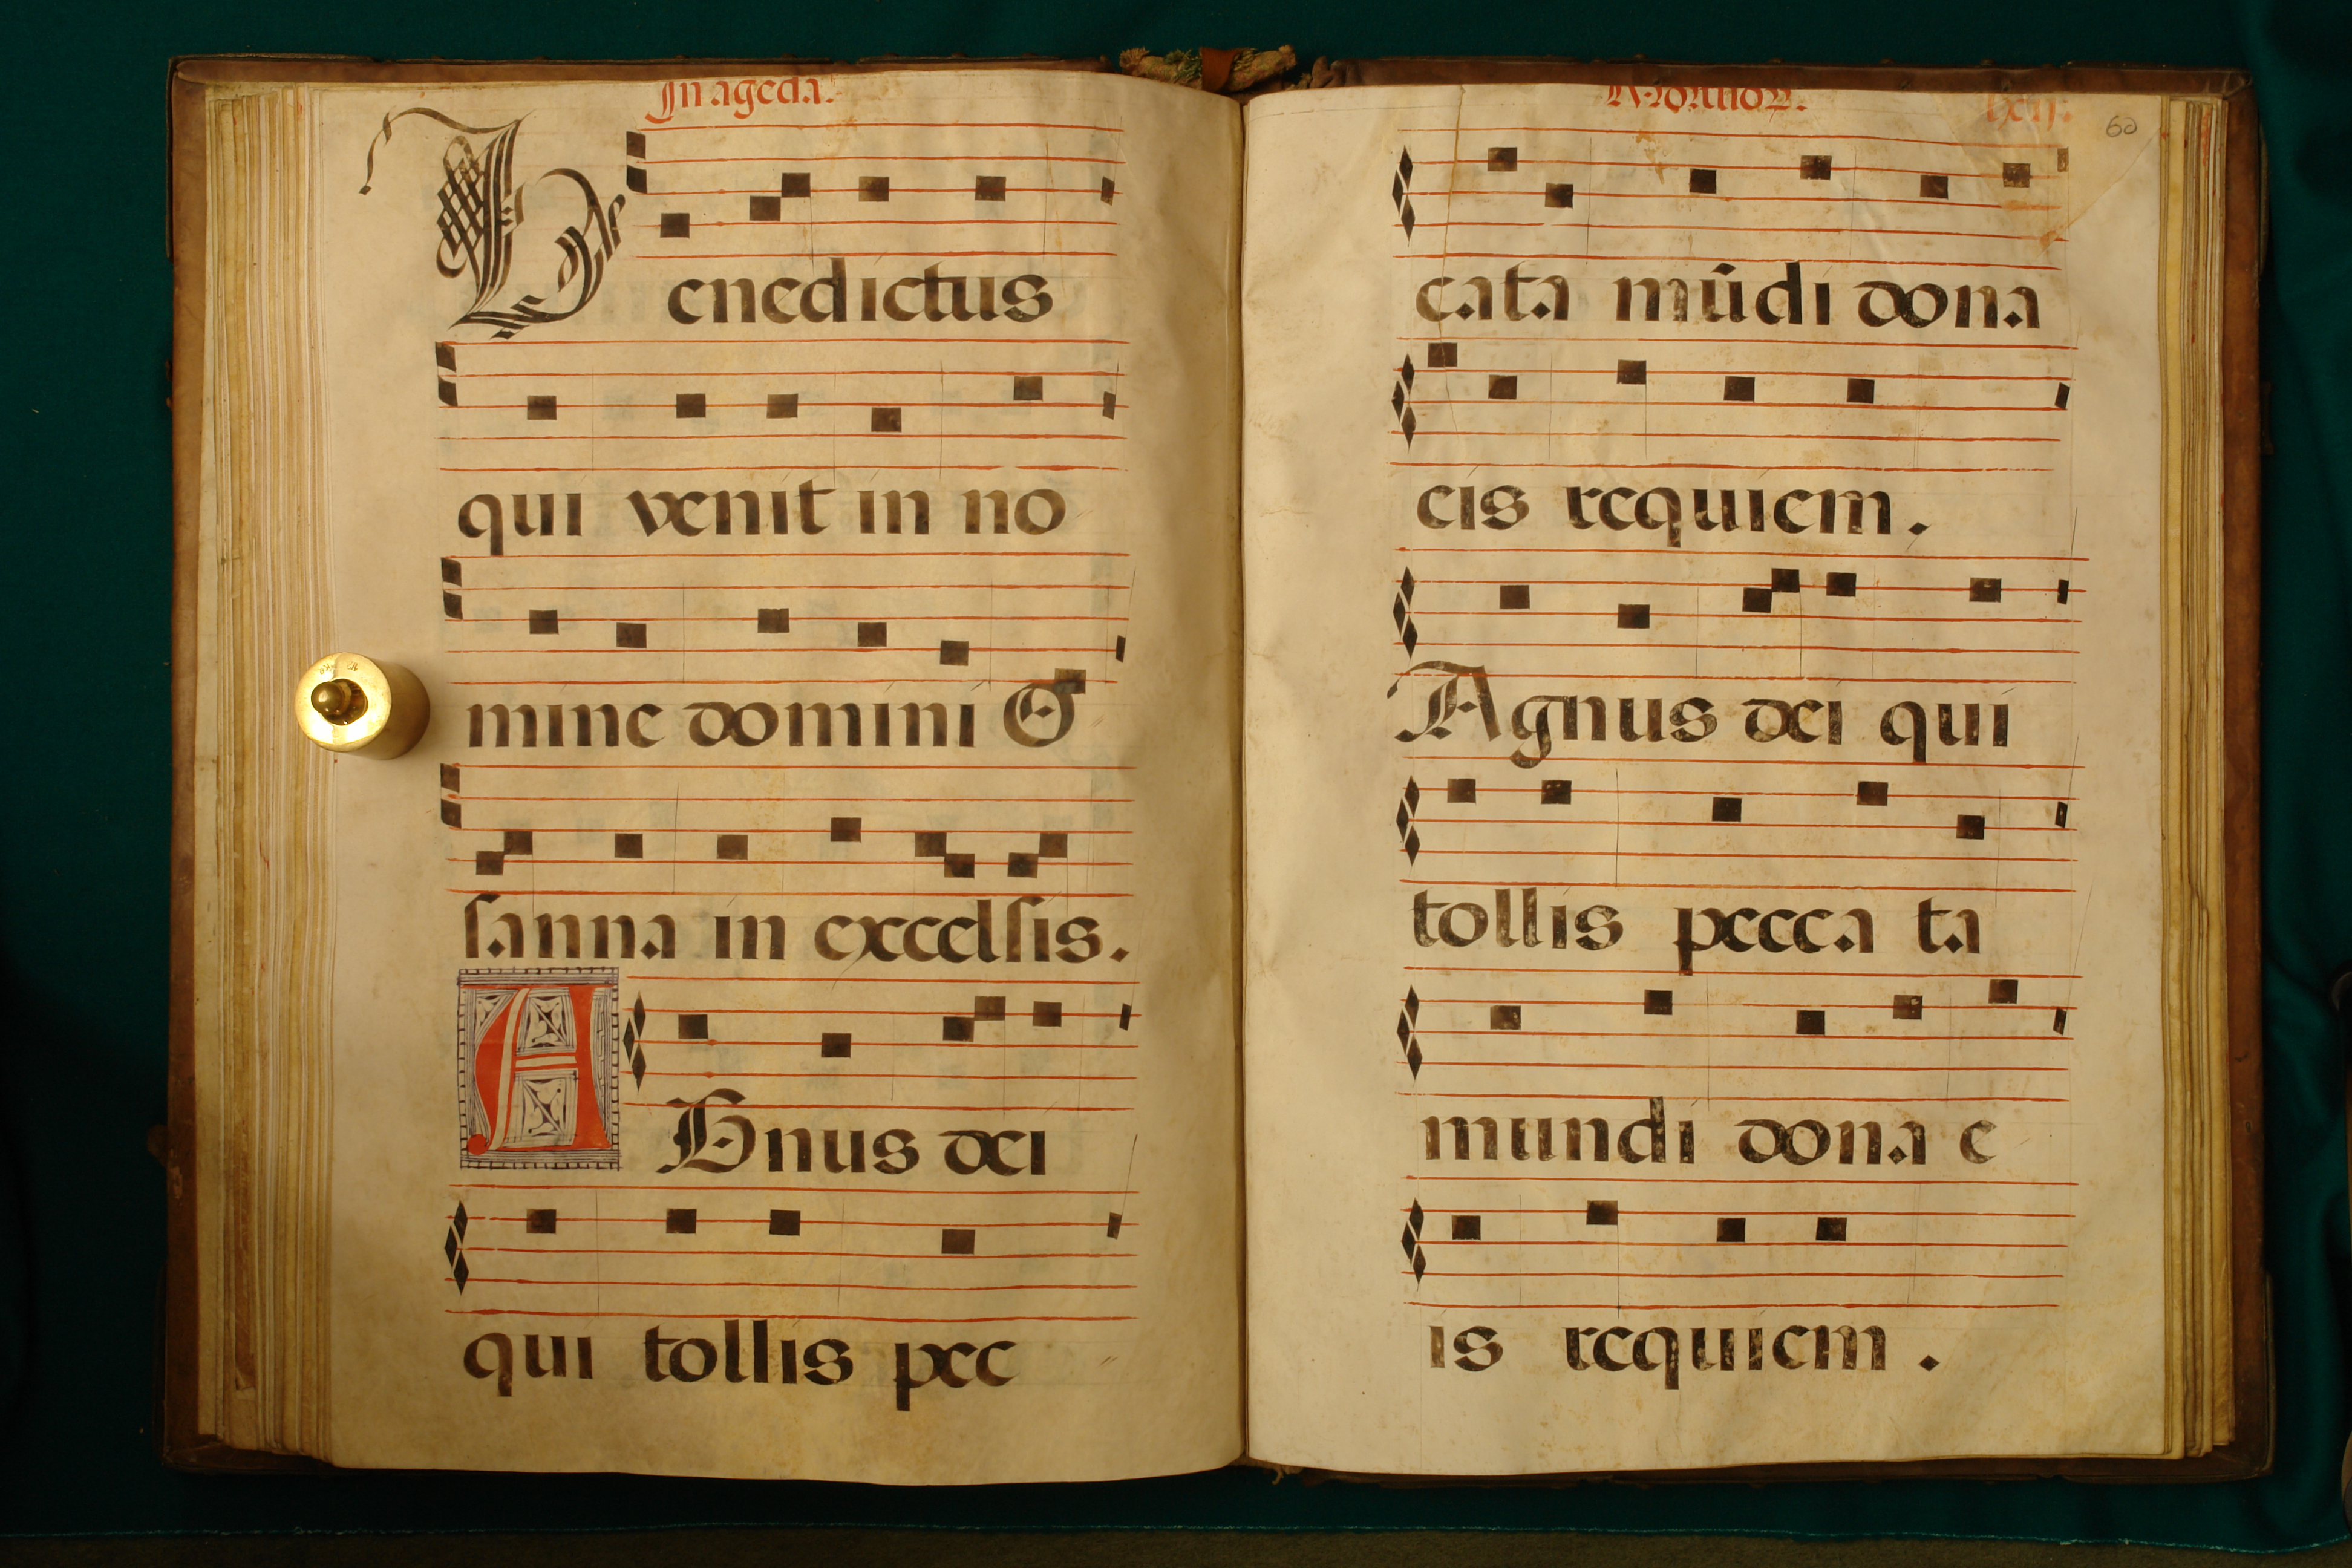 In agēda.
Benedictus
qui venit in no
mine domini O
sanna in excelsis.
AGnus dei
qui tollis pec
60
cata mūdi dona
eis requiem.
Agnus dei qui
tollis pecca ta
mundi dona e
is requiem.